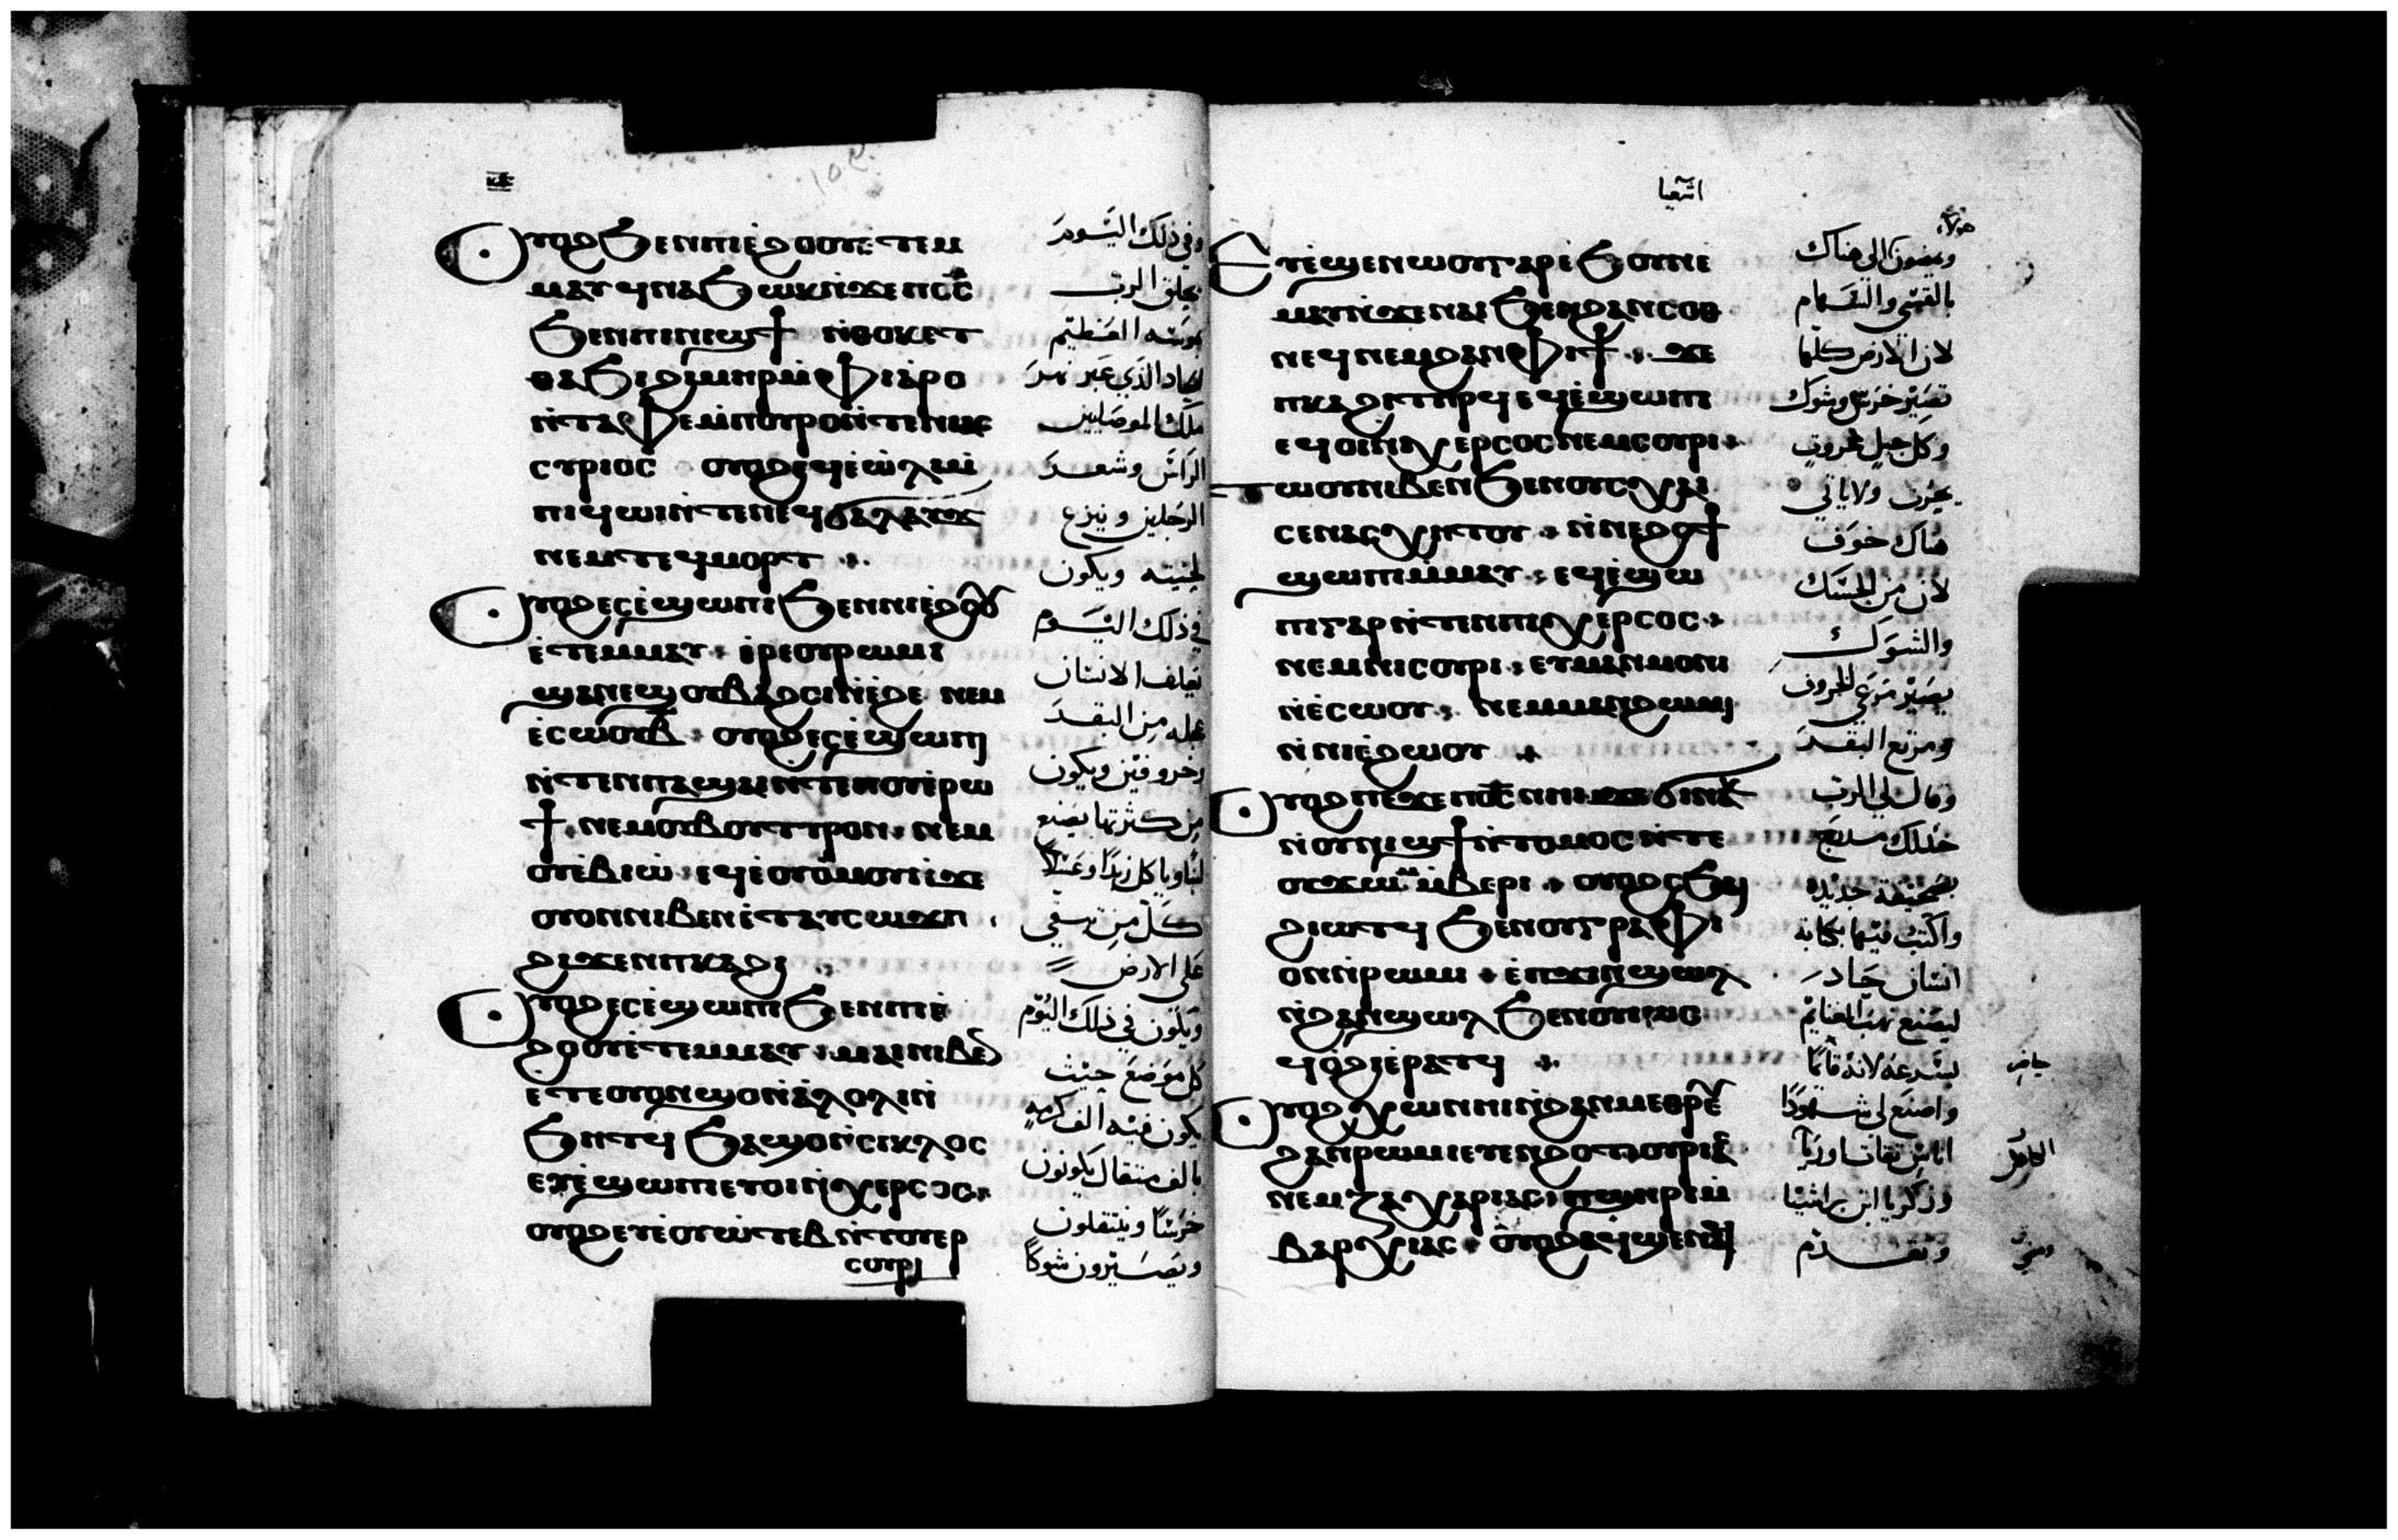 Ⲟⲩⲟϩ ϧⲉⲛⲡⲓⲉϩⲟⲟⲩ ⲉⲧⲉⲙ
ⲙⲁⲩ ϥⲛⲁϧⲱⲕ ⲛϫⲉⲡϭⲥ
ϧⲉⲛⲡⲓⲛⲓϣϯ ⲛⲑⲟⲕ ⲉⲧ
ⲑⲁϧⲓ ϩⲓⲙⲏⲣ ⲙⲫⲓⲁⲣⲟ
ⲛⲧⲁⲫⲉ ⲙⲡⲟⲩⲣⲟ ⲛⲧⲉⲛⲓⲁⲥ
ⲥⲩⲣⲓⲟⲥ ⲟⲩⲟϩ ⲉϥⲉⲱⲗⲓ ⲙ
ⲡⲓϥⲱⲓ ⲛⲧⲉⲛⲉϥϭⲁⲗⲁⲩϫ
ⲛⲉⲙ ⲧⲉϥⲙⲟⲣⲧ ⁘
Ⲟⲩⲟϩ ⲉⲥⲉϣⲱⲡⲓ ϧⲉⲛⲡⲓⲉϩⲟⲟⲩ
ⲉⲧⲉⲙⲙⲁⲩ · ⲉⲣⲉⲟⲩⲣⲱⲙⲓ
ϣⲁⲛⲉϣ ⲟⲩⲃⲁϩⲥⲓ ⲛⲉϩⲉ ⲛⲉⲙ
ⲉⲥⲱⲟⲩ ⲃ̄ · ⲟⲩⲟϩ ⲉⲥⲉϣⲱⲡⲓ
ⲛⲧⲉⲛⲡⲁϣⲁⲓ ⲛⲧⲉⲡⲟⲩⲉⲣⲱ
ϯ · ⲛⲉⲙ ⲟⲩⲃⲟⲩⲧⲩⲣⲟⲛ · ⲛⲉⲙ
ⲟⲩⲉⲃⲓⲱ · ⲉϥⲉⲟⲩⲟⲙⲟⲩ ⲛϫⲉ
ⲟⲩⲟⲛ ⲛⲓⲃⲉⲛ ⲉⲧⲁⲩⲥⲱϫⲡ ·
ϩⲓϫⲉⲛⲡⲕⲁϩⲓ ⁘
Ⲟⲩⲟϩ ⲉⲥⲉϣⲱⲡⲓ ϧⲉⲛⲡⲓⲉ
ϩⲟⲟⲩ ⲉⲧⲉⲙⲙⲁⲩ · ⲙⲁⲓ ⲛⲓⲃⲉⲛ
ⲉⲧⲉⲟⲩⲟⲛ ϣⲟ ⲛⲁⲗⲟⲗⲓ ⲛ
ϧⲏⲧϥ ϧⲁϣⲟ ⲛⲥⲓⲕⲗⲟⲥ
ⲉⲩⲉϣⲱⲡⲓ ⲉⲧⲟⲓ ⲛⲭⲉⲣⲥⲟⲥ ·
ⲟⲩⲟϩ ⲉⲩⲉⲟⲩⲱⲧⲉⲃ ⲛⲧⲟⲩⲉⲣ
ⲥⲟⲩⲣⲓ
وفي ذلك اليوم
يحلق الرب
بموسه العظيم
الحاد الذي عبر نهر
ملك الموصليين
الراس وشعر
الرجلين وينزع
لحيته ويكون
في ذلك اليوم
يعلف الانسان
عجله من البقر
وخروفين ويكون
من كثرتها يصنع
لبنا وياكل زبدا وعسلا
كل من تبقي
على الارض
ويكون في ذلك اليوم
كل موضع حيث
يكون فيه الف كرمه
بالف مثقال يكونون
خرسا وينتقلون
ويصيرون شوكا
اشعيا
Ⲉⲩⲉϣⲉⲛⲱⲟⲩ ⲅⲁⲣ ⲉϧⲟⲩⲛ ⲉ
ⲙⲁⲩ ⲛϫⲉⲛⲁⲓ ϧⲉⲛϩⲁⲛⲥⲟⲑ
ⲛⲉϥ ⲛⲉⲙ ϩⲁⲛⲫⲓϯ · ϫⲉ
ⲡⲕⲁϩⲓ ⲧⲏⲣϥ ⲉϥⲉϣⲱⲡⲓ
ⲉϥⲟⲓ ⲛⲭⲉⲣⲥⲟⲥ ⲛⲉⲙ ⲥⲟⲩⲣⲓ ·
ⲧⲱⲟⲩ ⲛⲓⲃⲉⲛ ϧⲉⲛⲟⲩⲥⲭⲁⲓ
ⲥⲉⲛⲁⲥⲭⲏⲧⲟⲩ · ⲛⲛⲉϩⲟϯ
ϣⲱⲡⲓ ⲙⲙⲁⲩ · ⲉϥⲉϣⲱ
ⲡⲓ ⲅⲁⲣ ⲛⲧⲉⲛⲡⲓⲭⲉⲣⲥⲟⲥ ·
ⲛⲉⲙ ⲛⲓⲥⲟⲩⲣⲓ · ⲉⲩⲙⲁⲙⲙⲟⲛⲓ
ⲛⲉⲥⲱⲟⲩ · ⲛⲉⲙ ⲙⲁⲛϩⲱⲙⲓ
ⲛⲛⲓⲉϩⲱⲟⲩ ⁘
Ⲟⲩⲟϩ ⲡⲉϫⲉⲡϭⲥ ⲛⲏⲓ ϫⲉ ϭⲓ ⲛⲁⲕ
ⲛⲟⲩⲛⲓϣϯ ⲛⲧⲟⲙⲟⲥ ⲛⲧⲉ
ⲟⲩϫⲱⲙ ⲙⲃⲉⲣⲓ · ⲟⲩⲟϩ ⲥϧⲁⲓ
ϩⲓⲱⲧϥ ϧⲉⲛⲟⲩⲅⲣⲁⲫⲓ
ⲟⲛ ⲛⲣⲱⲙⲓ · ⲉⲡϫⲓⲛϣⲱⲗ
ⲛϩⲁⲛϣⲱⲗ ϧⲉⲛⲟⲩⲓⲏⲥ
ϥⲟϩⲓ ⲉⲣⲁⲧϥ ⁘
Ⲟⲩⲟϩ ⲭⲱ ⲛⲏⲓ ⲛϩⲁⲛⲙⲉⲑⲣⲉ
ϩⲁⲛⲣⲱⲙⲓ ⲉⲩⲉⲛϩⲟⲧ · ⲟⲩⲣⲓⲁⲥ
ⲛⲉⲙ ⲍⲁⲭⲁⲣⲓⲁⲥ · ⲡϣⲏⲣⲓ ⲙ
ⲃⲁⲣⲁⲭⲓⲁⲥ · ⲟⲩⲟϩ ⲁϥϣⲉⲛⲁϥ
هولاء
ويمضون الي هناك
بالقسي والسهام
لان الارض كلها
تصير خرس وشوك
وكل جبل محروث
يحرث ولا ياتي
هناك خوف
لان من الحسك
والشوك
يصير مرعي الخروف
ومرتع البقر
وقال لي الرب
خذ لك
صحيفة جديدة
واكتب فيها بكتابة
انسان
ليصنع نهب الغنايم
بسرعه لانه قايما
حاضر
واصنع لي شهودا
اناس ثقات اوريا
الكاهن
وزكريا ابن براشيا
وتقدم